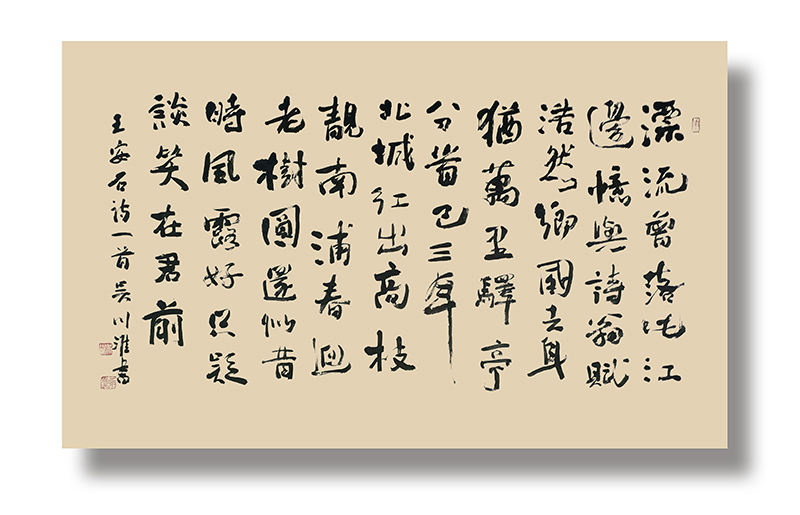 漂流曾落此江
邊憶與詩翁賦
浩然鄉國去身
猶萬里驛亭
分首已三年
北城紅出高枝
靚南浦春迴
老樹圓還似昔
時風露好只疑
談笑在君前
王安石詩一首吳川淮書